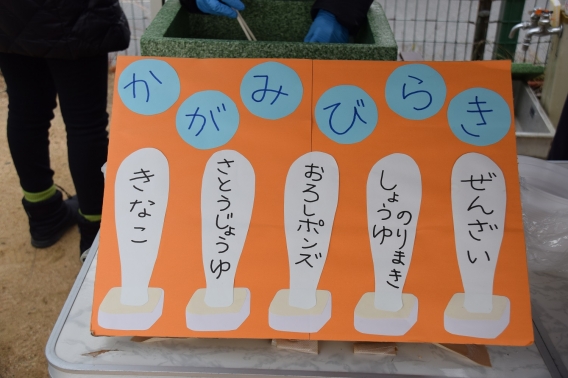 かがみびらき
きなこ
さとうじょうゆ
おろしポンズ
しょうゆ
のりまき
ぜんざい